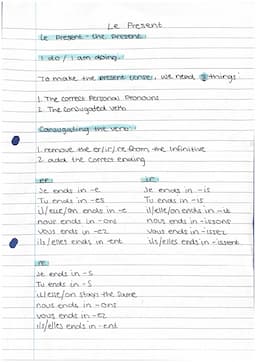 Le Present
Le Present - the present
I do / I am doing
To make the present tense, we need 2 things:
1. The correct Personal Pronouns
2. The conjugated verb
Conjugating the verb
1. remove the er/ir/re from the infinitive
2. add the correct ending
er
Je ends in -e
Tu ends in -es
il/elle/on ends in -e
nous ends in -ons
vous ends in -ez
ils/elles ends in -ent
ir
Je ends in -is
Tu ends in -is
il/elle/on ends in -it
nous ends in -issons
vous ends in -issez
ils/elles ends in -issent
re
Je ends in -s
Tu ends in -s
il/elle/on stays the same
nous ends in -ons
vous ends in -ez
ils/elles ends in -ent